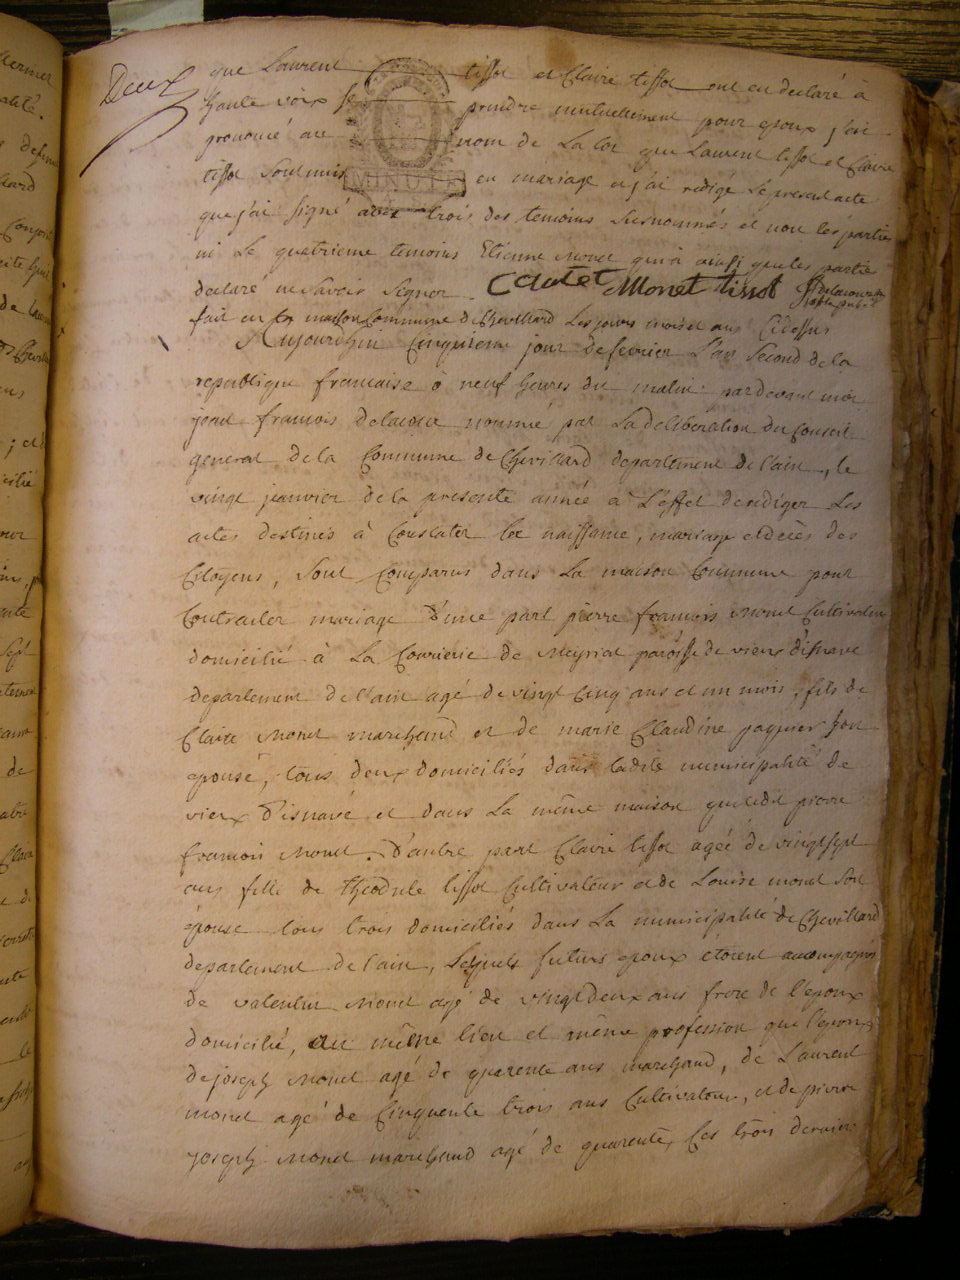 Deux
que Laurent tissot et Claire tissot ont eu declaré à
haute voix se prendre mutuellement pour epoux j'ai
prononcé au nom de La Loi que Laurent tissot et Claire
tissot sont unis en mariage et j'ai redigé Le present acte
MINUTE
que j'ai signé avec trois des temoins susnommés et non les partie
ni Le quatrieme temoins Etienne Monet qui a ainsi que les partie
declaré ne savoir signer. Monet tissot
fait en la maison Commune de Chevillard Les jours mois et ans Cidessus
Aujourdhui Cinquieme jour de fevrier L'an Second de la
republique francaise a neuf heures du matin pardevant moi
jean francois delacour nommé par La deliberation du Conseil
general de la Commune de Chevillard departement de l'ain, le
vingt janvier de la presente année a L'effet de rediger Les
actes destinés à Constater les naissance, mariage et décès des
Citoyens, Sont Comparus dans La maison Commune pour
Contracter mariage D'une part pierre francois Monet Cultivateur
domicilié à La Courierie de Meyriat paroisse de vieux d'isnave
departement de l'ain agé de vingt Cinq ans et un mois, fils de
Claire Monet marchand et de marie Claudine jaquier Son
epouse, tous deux domiciliés dans ladite municipalité de
vieux d'isnave et dans La même maison que ledit pierre
francois Monet. D'autre part Claire tissot agée de vingt sept
ans fille de theodule tissot Cultivateur et de Louise monet Son
épouse tous trois domiciliés dans La municipalité de Chevillard
departement de l'ain, Lesquels futurs epoux étoient accompagnés
de valentin Monet agé de vingt deux ans frere de l'epoux
domicilié, au même lieu et même profession que l'epoux
de joseph Monet agé de quarente ans marchand, de Laurent
monet agé de Cinquente trois ans Cultivateur, et de pierre
joseph Monet marchand agé de quarente, Ces trois derniers